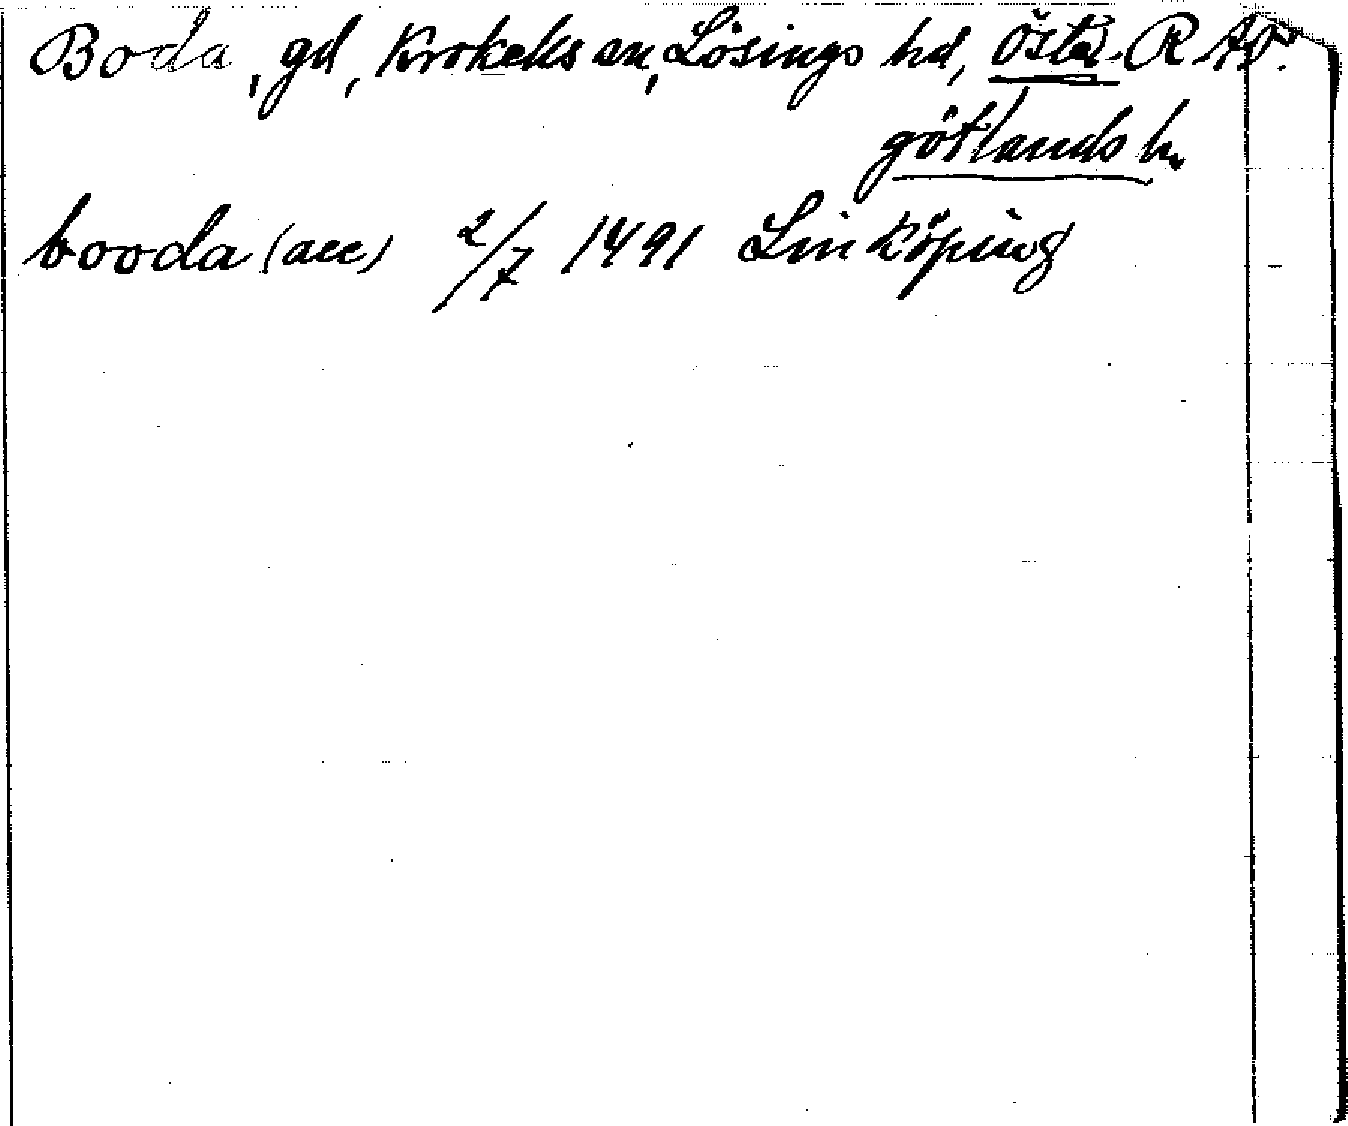 Boda, gd, Krokeks sn, Lösings hd, Öster- RAp.
götlands l.
booda (acc) 2/7 1491 Linköping